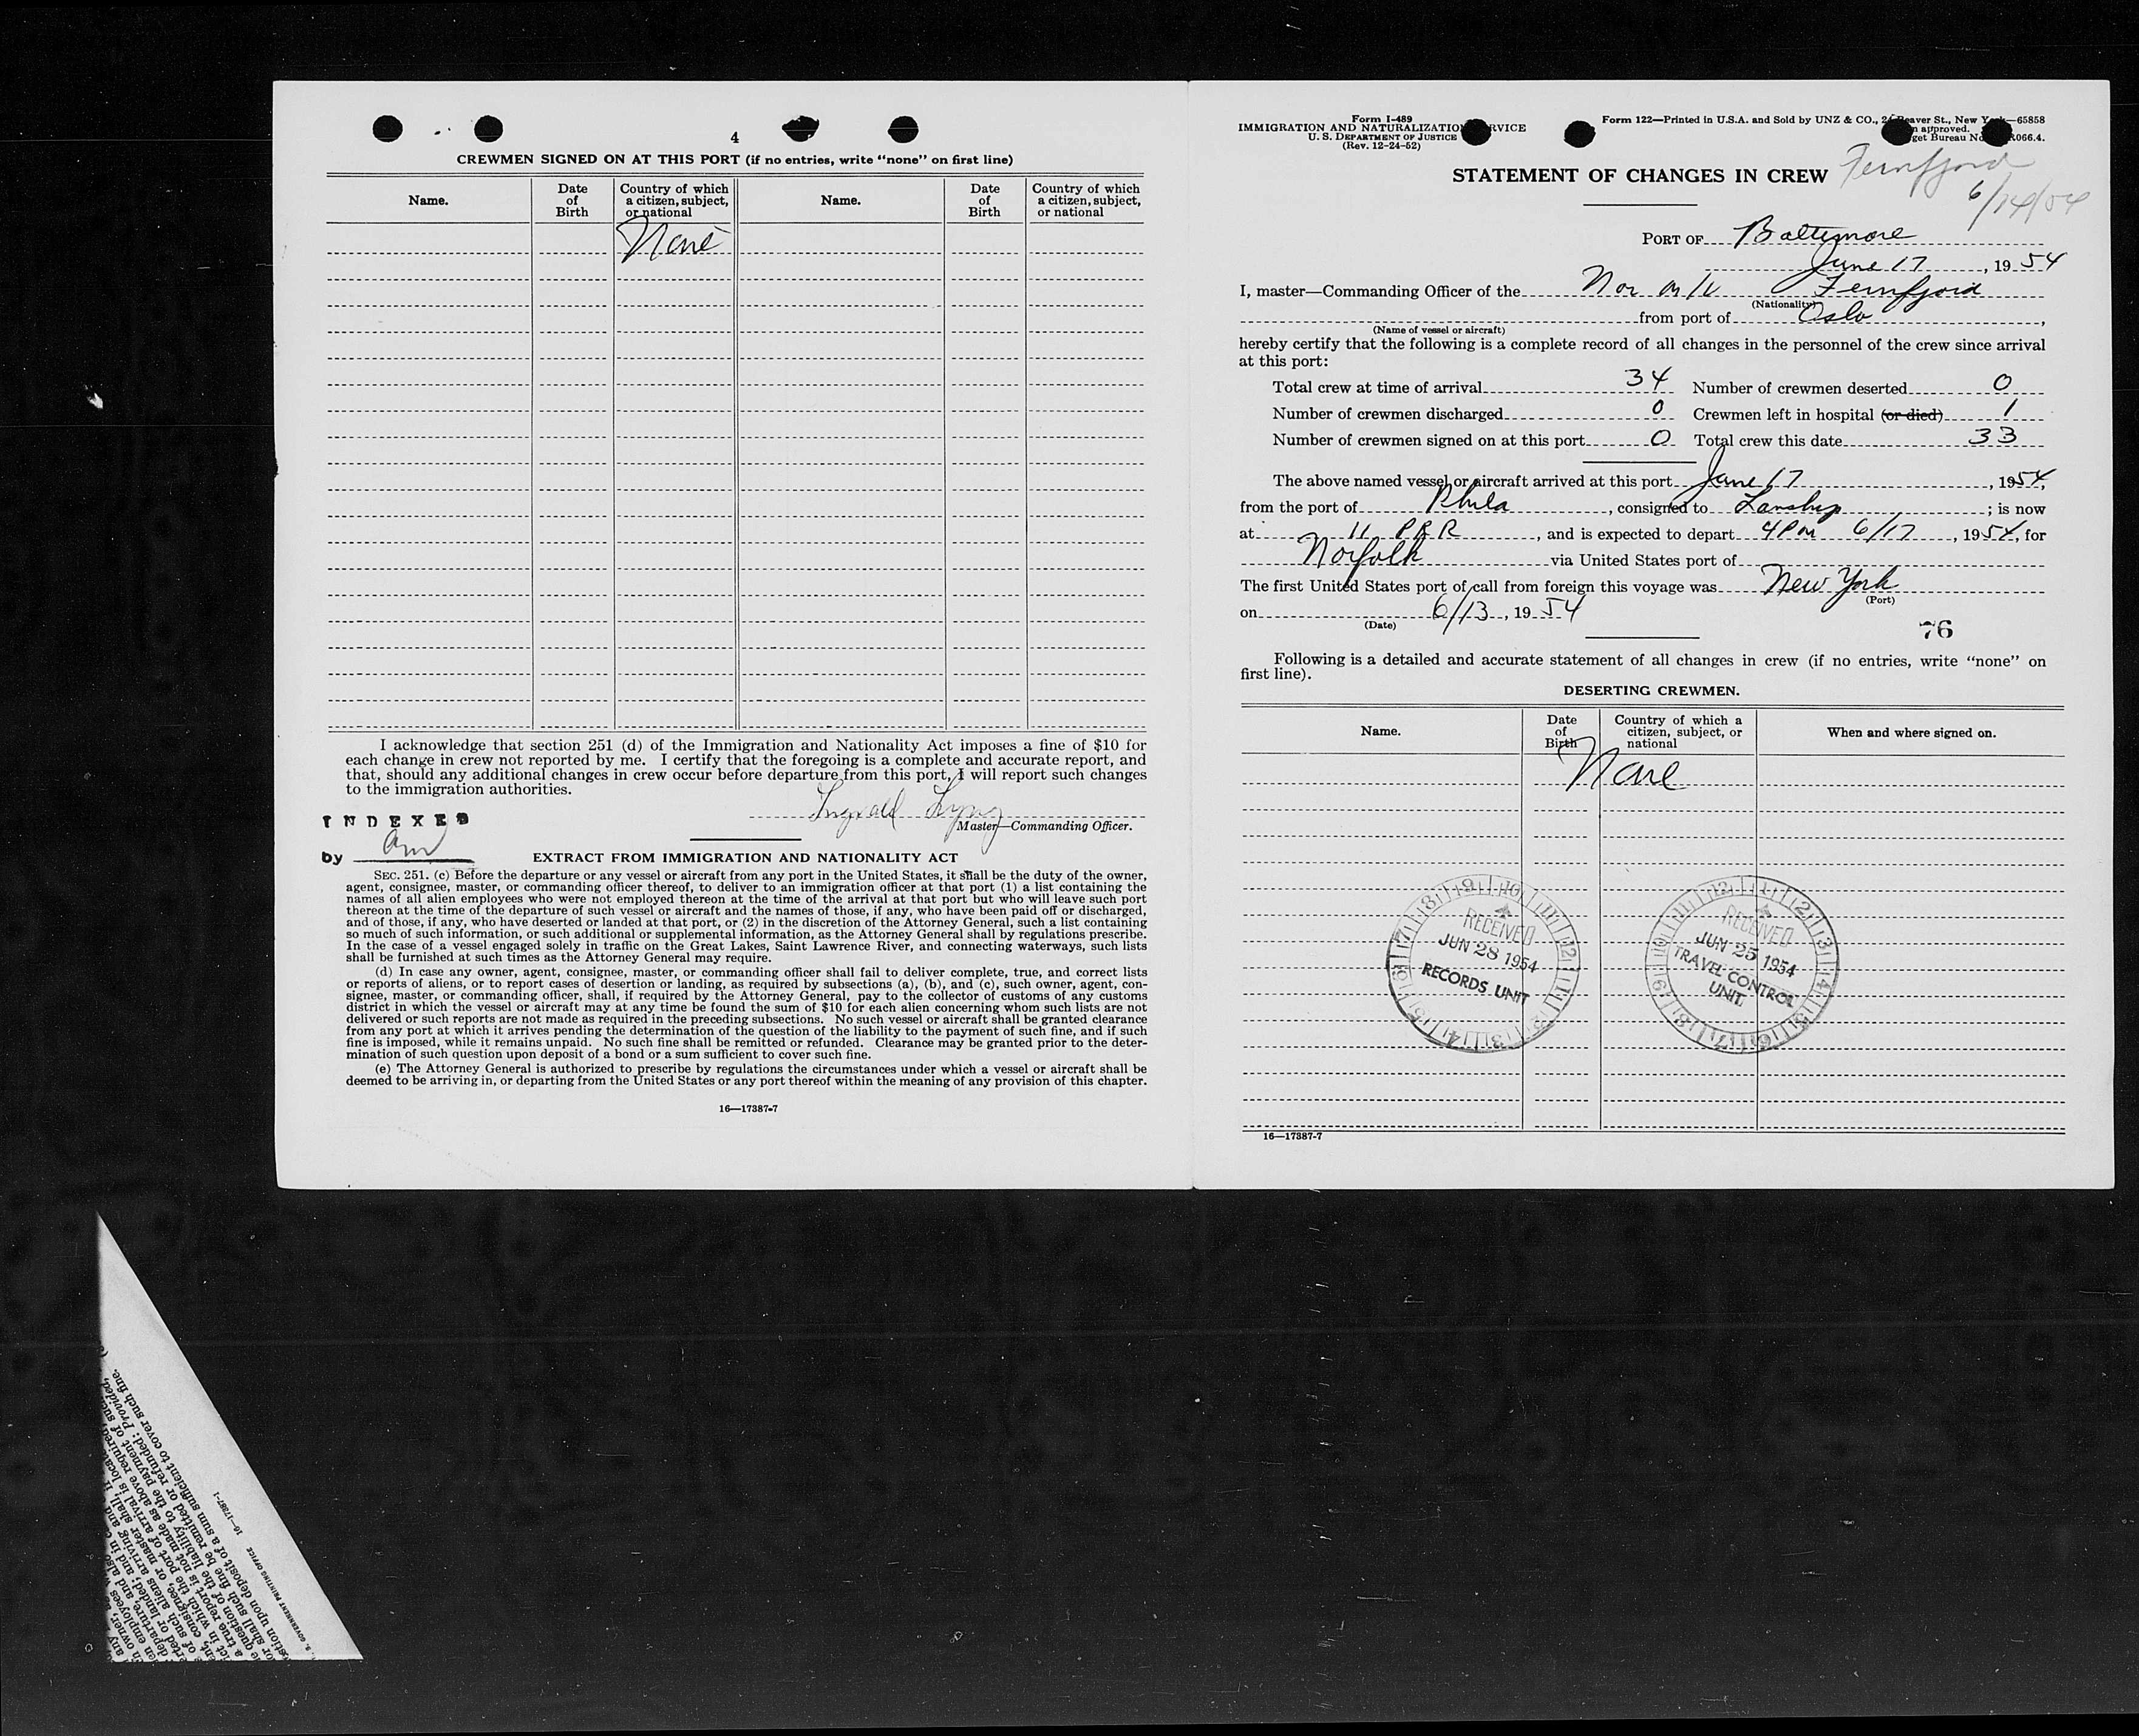 4
CREWMEN SIGNED ON AT THIS PORT (if no entries, write "none" on first line)
Name. Date of Birth Country of which a citizen, subject, or national Name. Date of Birth Country of which a citizen, subject, or national
None
I acknowledge that section 251 (d) of the Immigration and Nationality Act imposes a fine of $10 for
each change in crew not reported by me. I certify that the foregoing is a complete and accurate report, and
that, should any additional changes in crew occur before departure from this port, I will report such changes
to the immigration authorities.
INDEXED
by
Master—Commanding Officer.
EXTRACT FROM IMMIGRATION AND NATIONALITY ACT
SEC. 251. (c) Before the departure or any vessel or aircraft from any port in the United States, it shall be the duty of the owner,
agent, consignee, master, or commanding officer thereof, to deliver to an immigration officer at that port (1) a list containing the
names of all alien employees who were not employed thereon at the time of the arrival at that port but who will leave such port
thereon at the time of the departure of such vessel or aircraft and the names of those, if any, who have been paid off or discharged,
and of those, if any, who have deserted or landed at that port, or (2) in the discretion of the Attorney General, such a list containing
so much of such information, or such additional or supplemental information, as the Attorney General shall by regulations prescribe.
In the case of a vessel engaged solely in traffic on the Great Lakes, Saint Lawrence River, and connecting waterways, such lists
shall be furnished at such times as the Attorney General may require.
(d) In case any owner, agent, consignee, master, or commanding officer shall fail to deliver complete, true, and correct lists
or reports of aliens, or to report cases of desertion or landing, as required by subsections (a), (b), and (c), such owner, agent, con-
signee, master, or commanding officer, shall, if required by the Attorney General, pay to the collector of customs of any customs
district in which the vessel or aircraft may at any time be found the sum of $10 for each alien concerning whom such lists are not
delivered or such reports are not made as required in the preceding subsections. No such vessel or aircraft shall be granted clearance
from any port at which it arrives pending the determination of the question of the liability to the payment of such fine, and if such
fine is imposed, while it remains unpaid. No such fine shall be remitted or refunded. Clearance may be granted prior to the deter-
mination of such question upon deposit of a bond or a sum sufficient to cover such fine.
(e) The Attorney General is authorized to prescribe by regulations the circumstances under which a vessel or aircraft shall be
deemed to be arriving in, or departing from the United States or any port thereof within the meaning of any provision of this chapter.
16—17387-7
Form I-489
IMMIGRATION AND NATURALIZATION SERVICE
U. S. DEPARTMENT OF JUSTICE
(Rev. 12-24-52)
Form 122—Printed in U.S.A. and Sold by UNZ & CO., Beaver St., New York—65858
approved.
Bureau No. 066.4.
STATEMENT OF CHANGES IN CREW Fernfjord
6/14/54
PORT OF Baltimore
June 17, 1954
I, master—Commanding Officer of the Nor M/V Fernfjord
(Nationality)
from port of Oslo,
(Name of vessel or aircraft)
hereby certify that the following is a complete record of all changes in the personnel of the crew since arrival
at this port:
Total crew at time of arrival 34 Number of crewmen deserted 0
Number of crewmen discharged 0 Crewmen left in hospital (or died) 1
Number of crewmen signed on at this port 0 Total crew this date 33
The above named vessel or aircraft arrived at this port June 17, 1954,
from the port of Phila, consigned to ; is now
at 11 PRR, and is expected to depart 4 PM 6/17, 1954, for
Norfolk via United States port of
The first United States port of call from foreign this voyage was New York
(Port)
on 6/13, 1954
(Date)
76
Following is a detailed and accurate statement of all changes in crew (if no entries, write "none" on
first line).
DESERTING CREWMEN.
Name. Date of Birth Country of which a citizen, subject, or national When and where signed on.
None
RECEIVED
JUN 28 1954
RECORDS UNIT
RECEIVED
JUN 25 1954
TRAVEL CONTROL
UNIT
16—17387-7